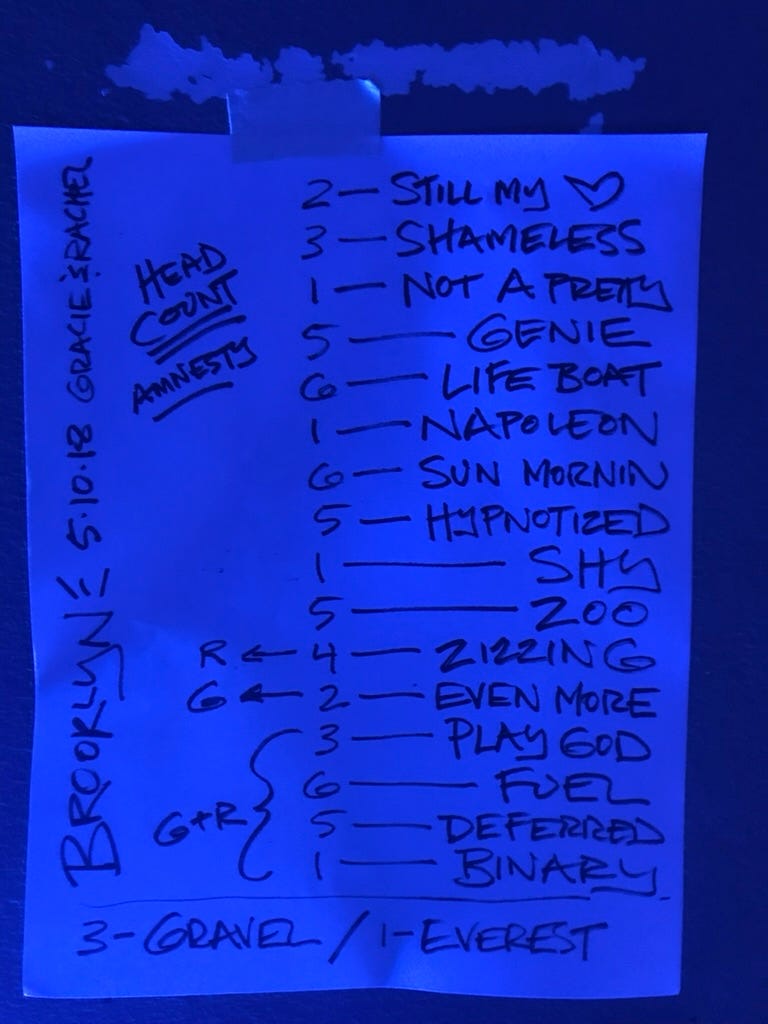 BROOKLYN 5.10.18 GRACIE & RACHEL
HEAD
COUNT
AMNESTY
2 — STILL MY ♡
3 — SHAMELESS
1 — NOT A PRETTY
5 — GENIE
6 — LIFE BOAT
1 — NAPOLEON
6 — SUN MORNIN
5 — HYPNOTIZED
1 — SHY
5 — ZOO
R ← 4 — ZIZZING
G ← 2 — EVEN MORE
3 — PLAY GOD
6 — FUEL
G+R { 5 — DEFERRED
1 — BINARY
3 - GRAVEL / 1 - EVEREST